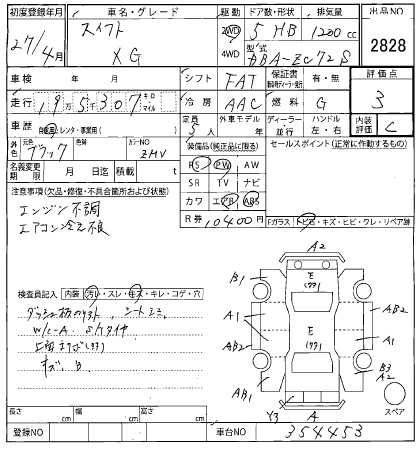 初度登録年月 車名・グレード 駆動 ドア数・形状 排気量 出品NO
27/4月 スイフト XG 2WD 4WD 5 HB 1200cc 2828
型式 DBA-ZC72S
車検 年 月 シフト FAT 保証書 有・無 評価点
走行 19万5307 キロ マイル 冷房 AAC 燃料 G 3
車歴 自家用・レンタ・事業用( ) 定員 5人 外車モデル 年 ディーラー 並行 ハンドル 左・右 内装評価 C
外色 元色 ブラック 色替 カラーNO ZMV
装備品(純正品に限る) セールスポイント(正常に作動するもの)
名義変更期限 月 日迄 積 t
PS PW AW
SR TV ナビ
カワ エアB ABS
R券 10400円
注意事項(欠品・修復・不具合箇所および状態)
エンジン不調
エアコン冷え不良
Fガラス トビ石・キズ・ヒビ・ワレ・リペア跡
検査員記入 内装 汚れ・スレ・キズ・キレ・コゲ・穴
シートシミ
W/C-A Sハタイヤ
キズ 有
A2
B1 E (99)
A1 AB2
E
AB2 (99) A1
B3
A2
AB1
Y3 A スペア
長さ cm 幅 cm 高さ cm
登録NO 車台NO 354453